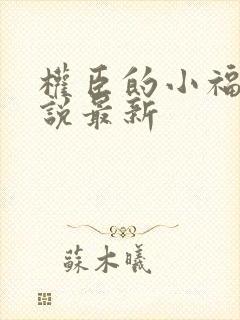 權臣的小福
說最新
蘇木曦